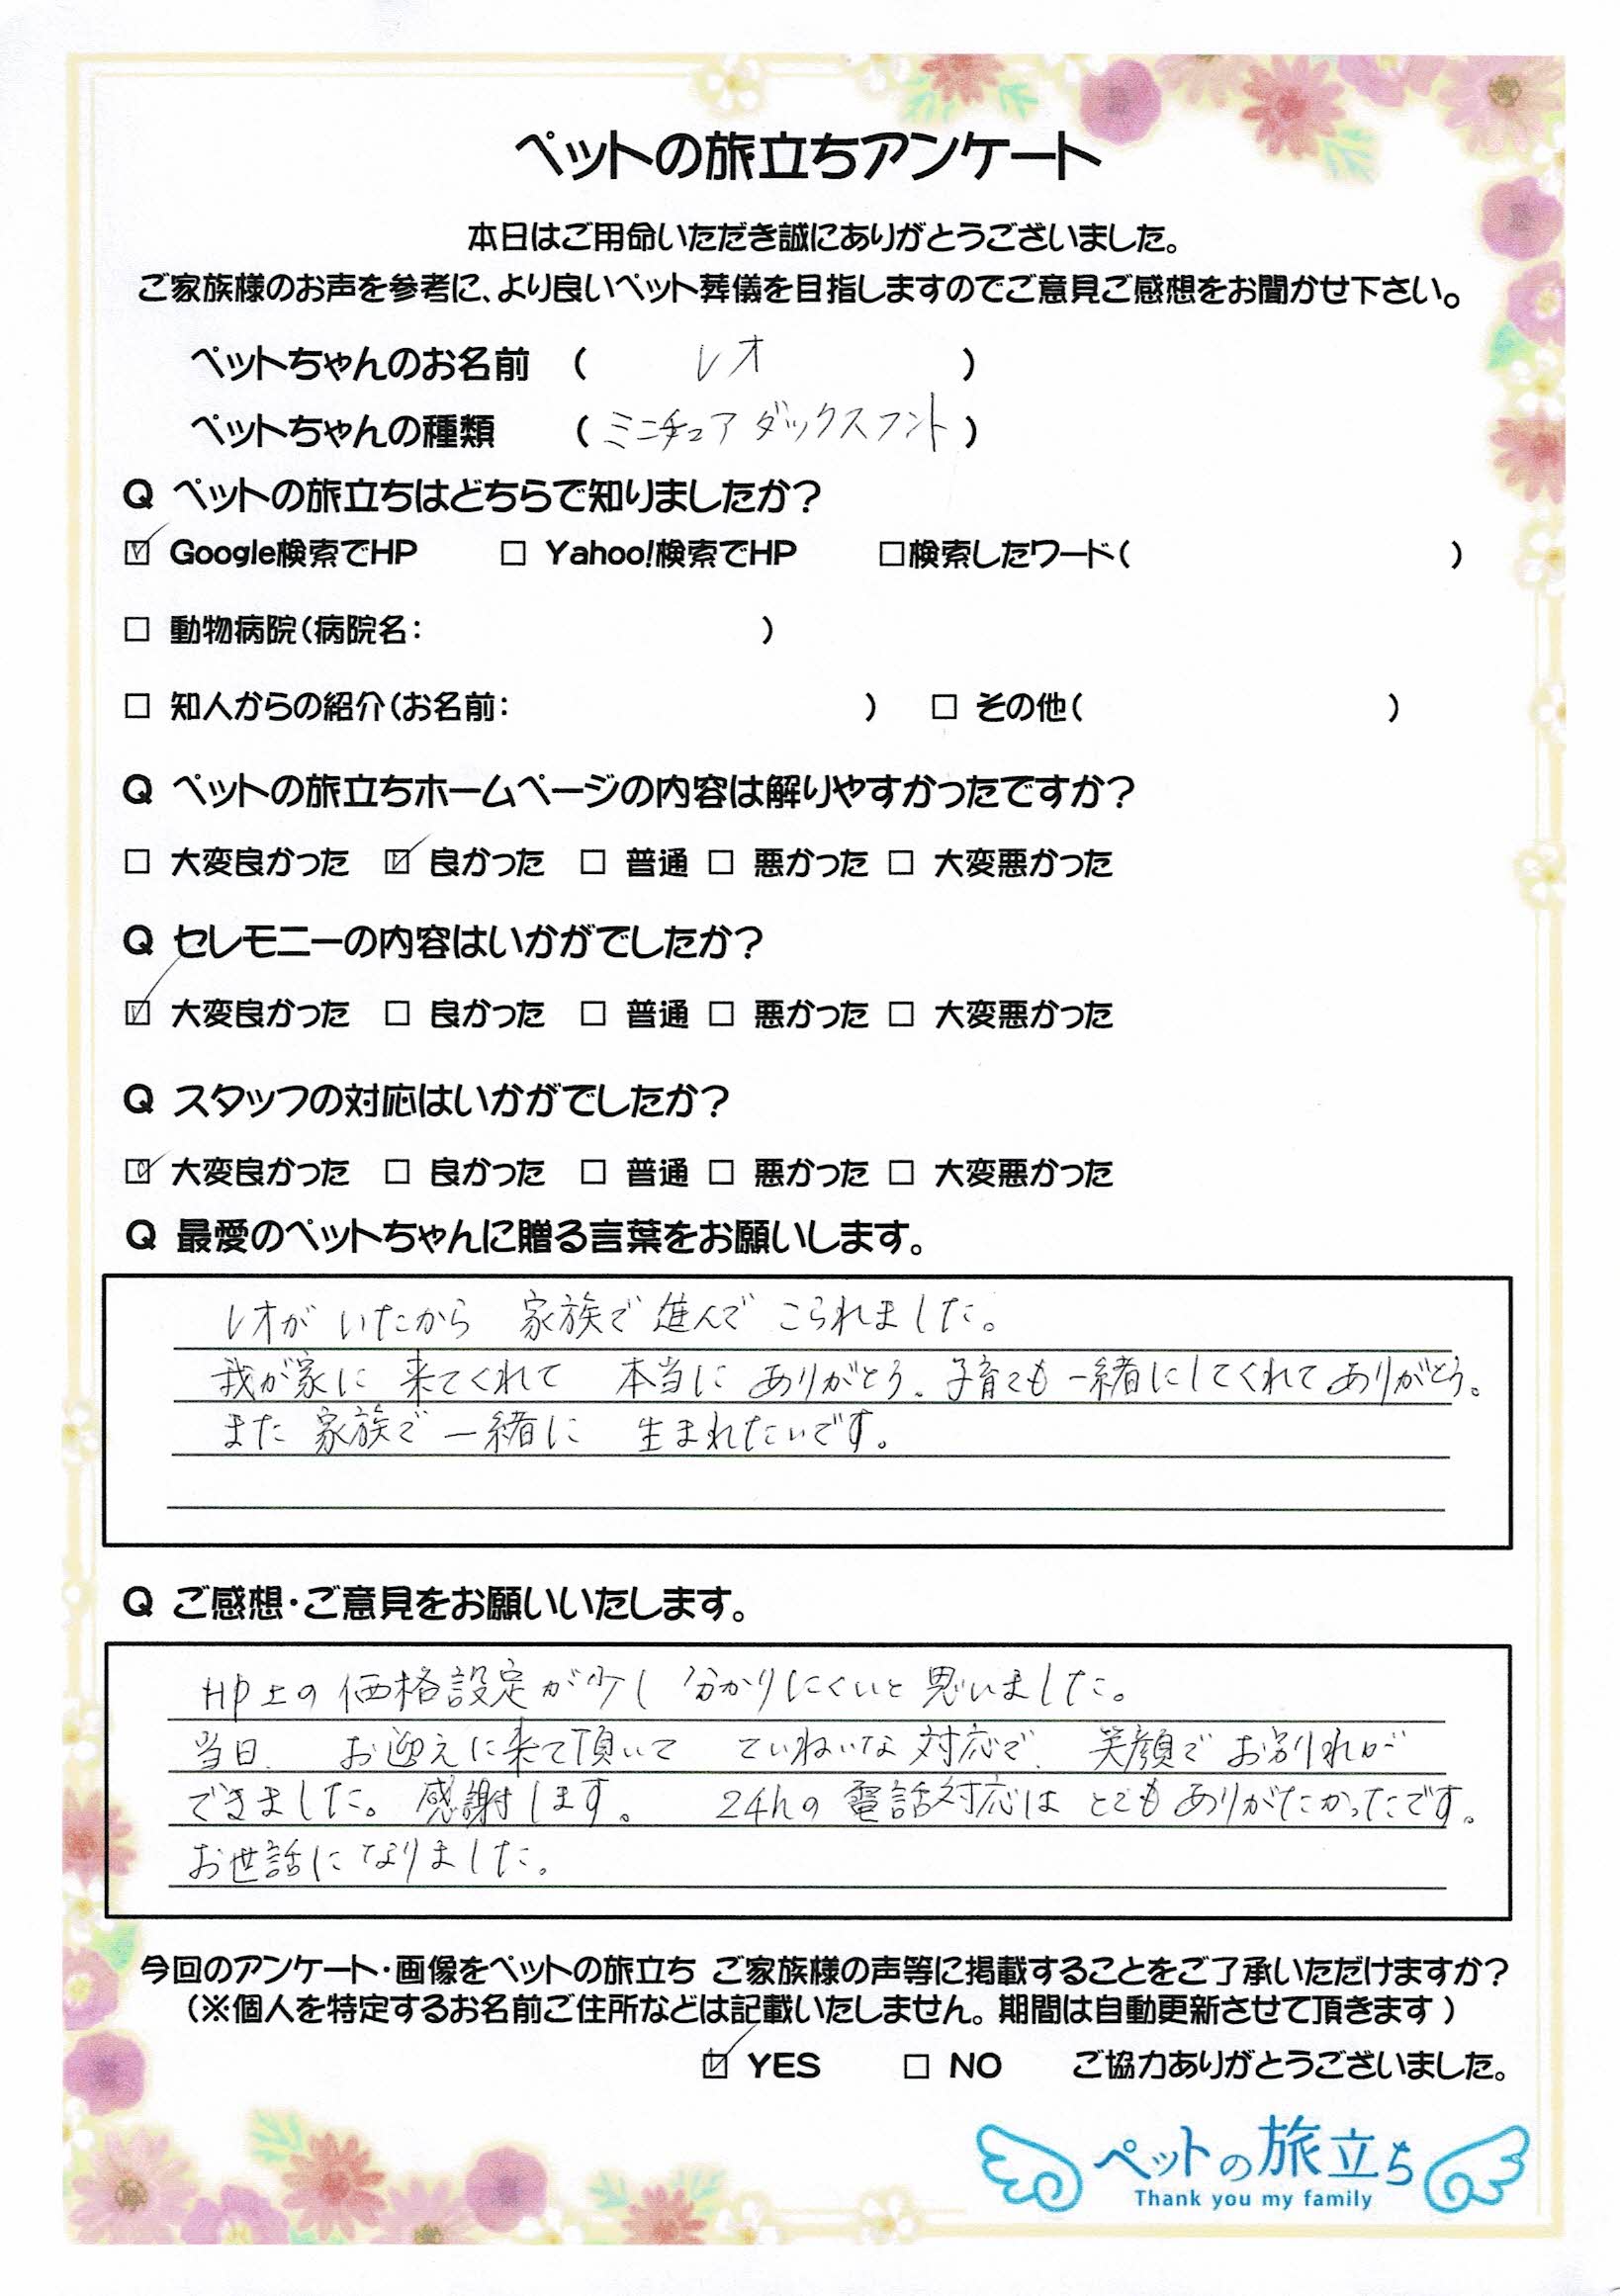 ペットの旅立ちアンケート
本日はご用命いただき誠にありがとうございました。
ご家族様のお声を参考に、より良いペット葬儀を目指しますのでご意見ご感想をお聞かせ下さい。
ペットちゃんのお名前 ( レオ )
ペットちゃんの種類 ( ミニチュア ダックスフント )
Q ペットの旅立ちはどちらで知りましたか?
☑ Google検索でHP □ Yahoo!検索でHP □検索したワード( )
□ 動物病院(病院名: )
□ 知人からの紹介(お名前: ) □ その他( )
Q ペットの旅立ちホームページの内容は解りやすかったですか?
□ 大変良かった ☑ 良かった □ 普通 □ 悪かった □ 大変悪かった
Q セレモニーの内容はいかがでしたか?
☑ 大変良かった □ 良かった □ 普通 □ 悪かった □ 大変悪かった
Q スタッフの対応はいかがでしたか?
☑ 大変良かった □ 良かった □ 普通 □ 悪かった □ 大変悪かった
Q 最愛のペットちゃんに贈る言葉をお願いします。
レオが いたから 家族で 進んで こられました。
我が家に 来てくれて 本当に ありがとう。子育ても 一緒にしてくれて ありがとう。
また 家族で 一緒に 生まれたいです。
Q ご感想・ご意見をお願いいたします。
HP上の 価格設定が少し 分かりにくいと 思いました。
当日、 お迎えに来て頂いて ていねいな 対応で、 笑顔で お別れが
できました。 感謝します。 24hの 電話対応は とてもありがたかったです。
お世話に なりました。
今回のアンケート・画像をペットの旅立ち ご家族様の声等に掲載することをご了承いただけますか?
(※個人を特定するお名前ご住所などは記載いたしません。期間は自動更新させて頂きます)
☑ YES □ NO ご協力ありがとうございました。
ペットの旅立ち
Thank you my family